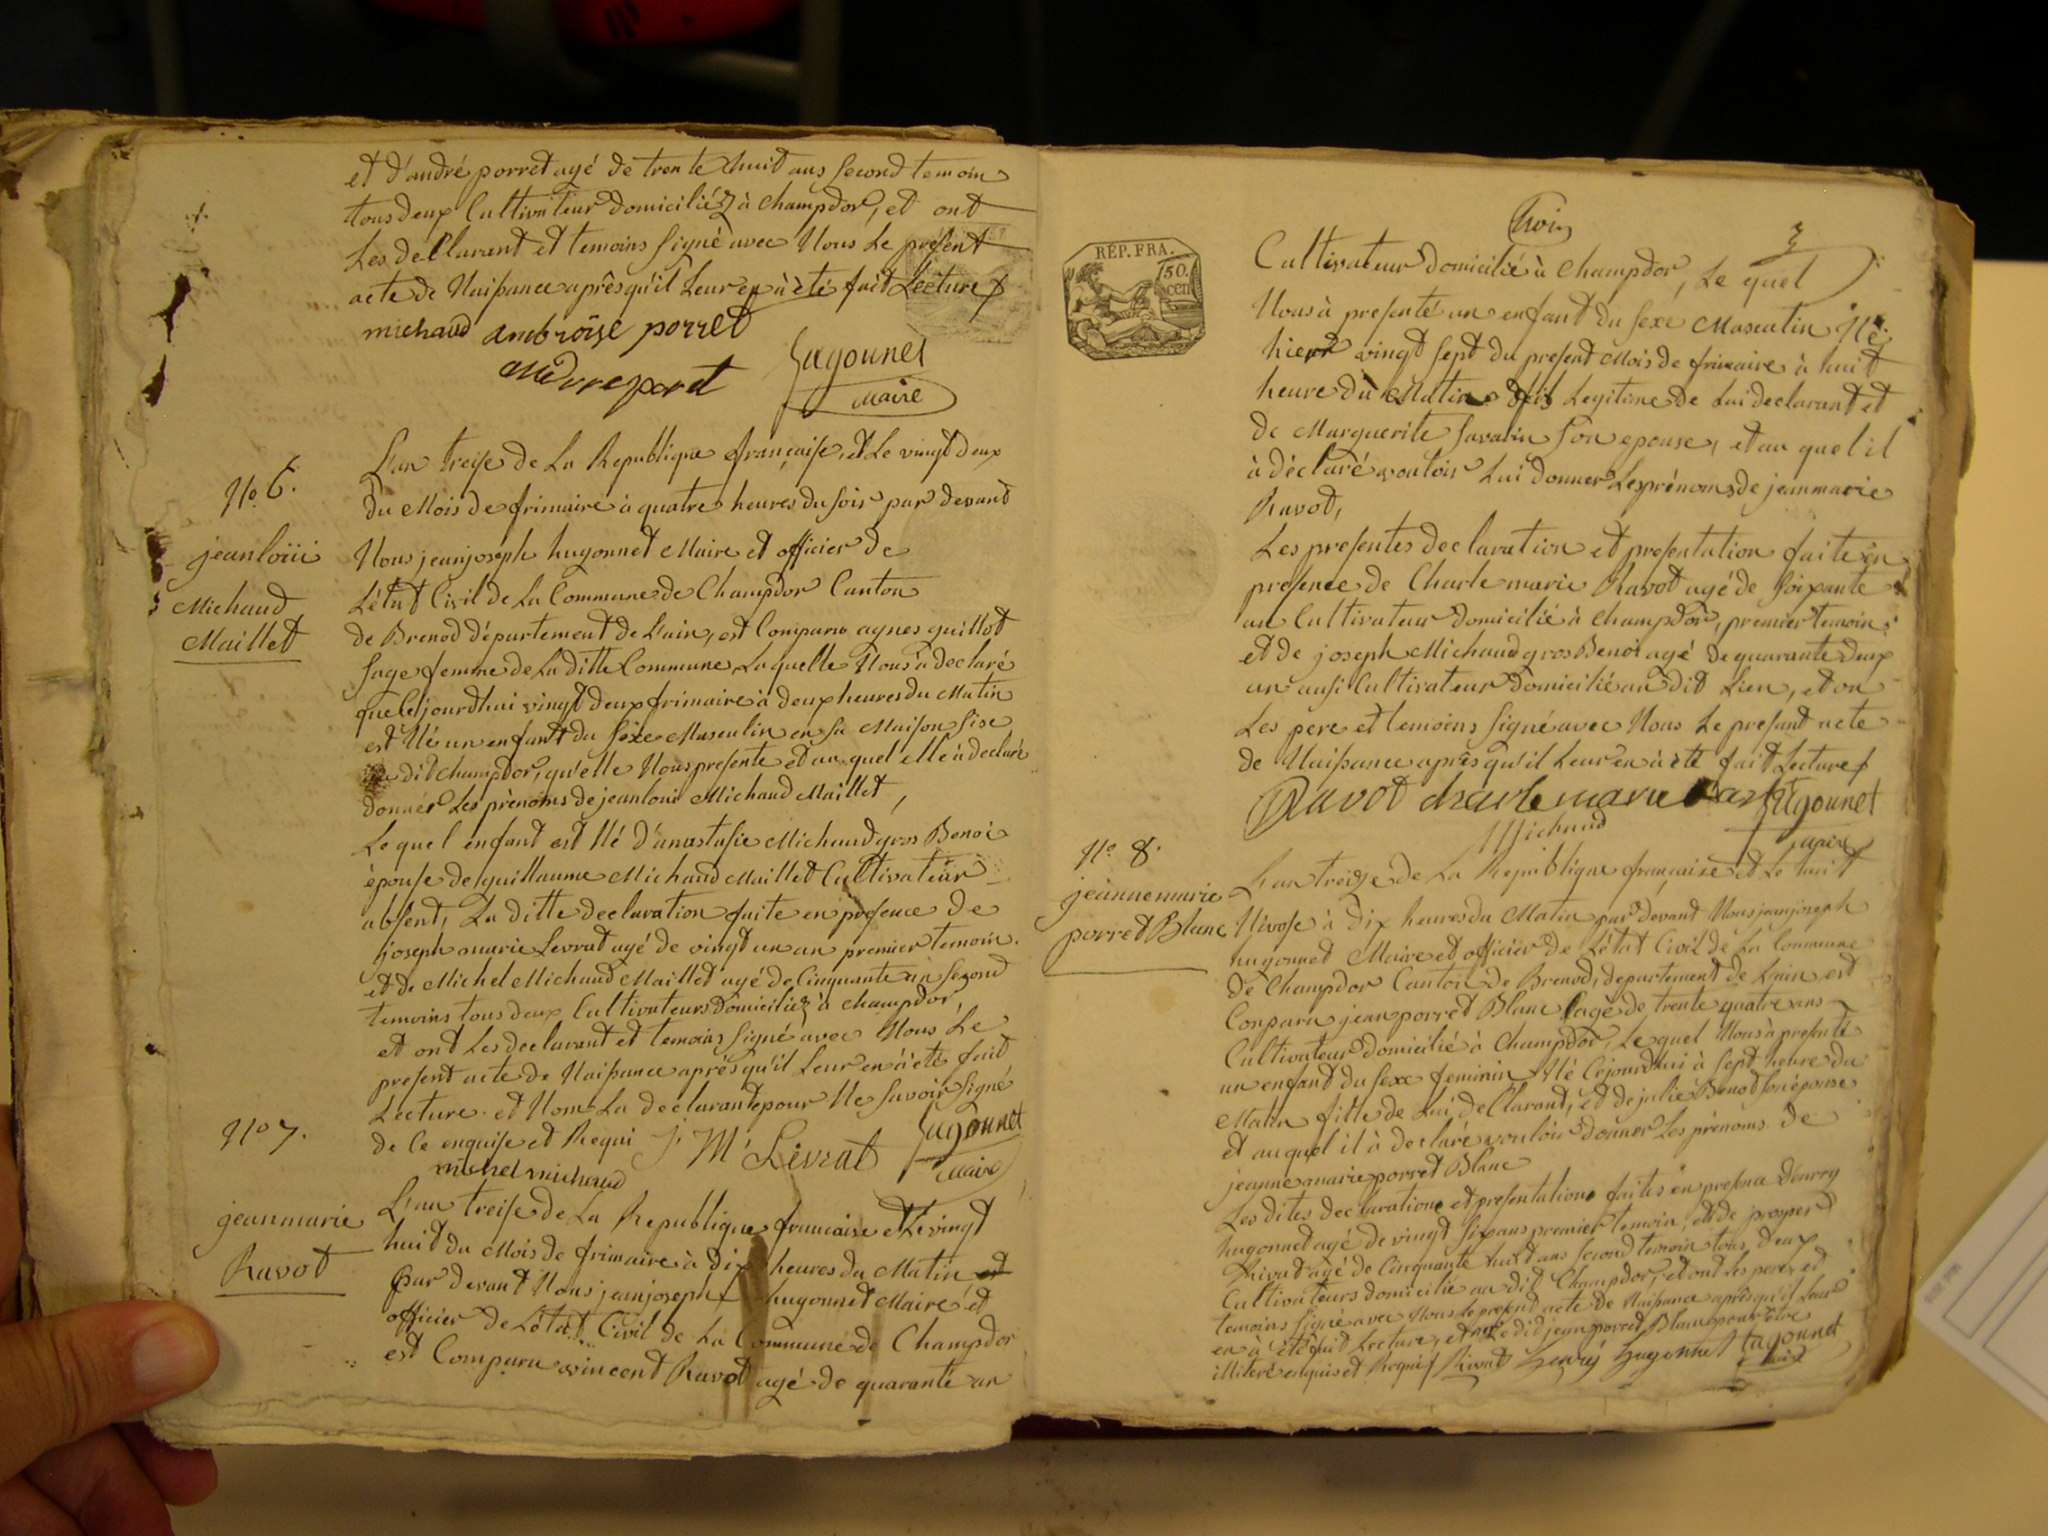 et d'andré porret agé de trente huit ans second temoin
tous deux Cultivateur domiciliéz à champdor, et ont
Les declarant et temoins signé avec Nous Le present
acte de Naissance après qu'il Leur en à été fait Lecture
michaud ambroise porret
andre poret hugonnet
maire
No 6.
jean loüi
Michaud
Maillet
L'an treise de La Republique française, et Le vingt deux
du Mois de frimaire à quatre heures du soir par devant
Nous jean joseph hugonnet Maire et officier de
L'état Civil de La Commune de Champdor Canton
de Brenod département de L'ain, est Comparu agnes guillot
sage femme de La ditte Commune, La quelle Nous à declaré
que Cejourdhui vingt deux frimaire à deux heures du Matin
est Né un enfant du sexe Masculin en sa Maison sise
au dit champdor, qu'elle Nous presente et au quel elle à declaré
donner Les prènoms de jean loui Michaud Maillet,
Le quel enfant est Né d'anastasie Michaud gros Benoi
épouse de guillaume Michaud Maillet Cultivateur
absent, La ditte declaration faite en presence de
joseph marie Levrat agé de vingt un an premier temoin
et de Michel Michaud Maillet agé de Cinquante un second
temoins tous deux Cultivateurs domiciliéz à champdor,
et ont Les declarant et temoins signé avec Nous Le
present acte de Naissance après qu'il Leur en à été fait
Lecture et Nom La declarante pour Ne savoir signé
de Ce enquise et Requi J M Levrat hugonnet
michel michaud maire
No 7.
jean marie
Ravot
L'an treise de La Republique francaise et Le vingt
huit du Mois de frimaire à dix heures du Matin et
par devant Nous jean joseph hugonnet Maire et
officier de L'état Civil de La Commune de Champdor
est Comparu vincent Ravot agé de quarante an
trois 3
RÉP. FRA.
50.
cen
Cultivateur domicilié à Champdor, Le quel
Nous à presenté un enfant du sexe Masculin Né
hier vingt sept du present Mois de frimaire à huit
heure du Matin fils Legitime de Lui declarant et
de Marguerite Savarin son epouse, et au quel il
à déclaré vouloir Lui donner Les prénoms de jean marie
Ravot,
Les presentes declaration et presentation faite en
presence de Charle marie Ravot agé de soixante
an Cultivateur domicilié à Champdor, premier temoin
et de joseph Michaud gros Benoi agé de quarante deux
an ausi Cultivateur domicilié au dit Lieu, et on
Les pere et temoins signé avec Nous Le presant acte
de Naissance après qu'il Leur en à été fait Lecture
Ravot charle marie hugonnet
Michaud maire
No 8.
jeanne marie
porret Blanc
L'an treize de La Republique française et Le huit
Nivose à dix heures du Matin par devant Nous jean joseph
hugonnet Maire et officier de L'état Civil de La Commune
de Champdor Canton de Brenod, departement de L'ain est
Conparu jean porret Blanc agé de trente quatre ans
Cultivateur domicilié à Champdor, Le quel Nous à presenté
un enfant du sexe feminin Né Cejourdhui à sept heure du
Matin fille de Lui declarant, et de julie Benod son épouse
et au quel il à declaré vouloir donner Les prènoms de
jeanne marie porret Blanc
Les dites declaration et presentation faites en presence d'henry
hugonnet agé de vingt six ans premier temoin, et de prosper
Rivat agé de Cinquante huit ans second temoin tous deux
Cultivateurs domicilié au dit Champdor, et ont Les pere et
temoins signé avec Nous le present acte de Naissance après qu'il Leur
en à été fait Lecture, et le dit jean porret Blanc pour être
illiteré enquis et Requis Rivat henry hugonnet hugonnet
maire